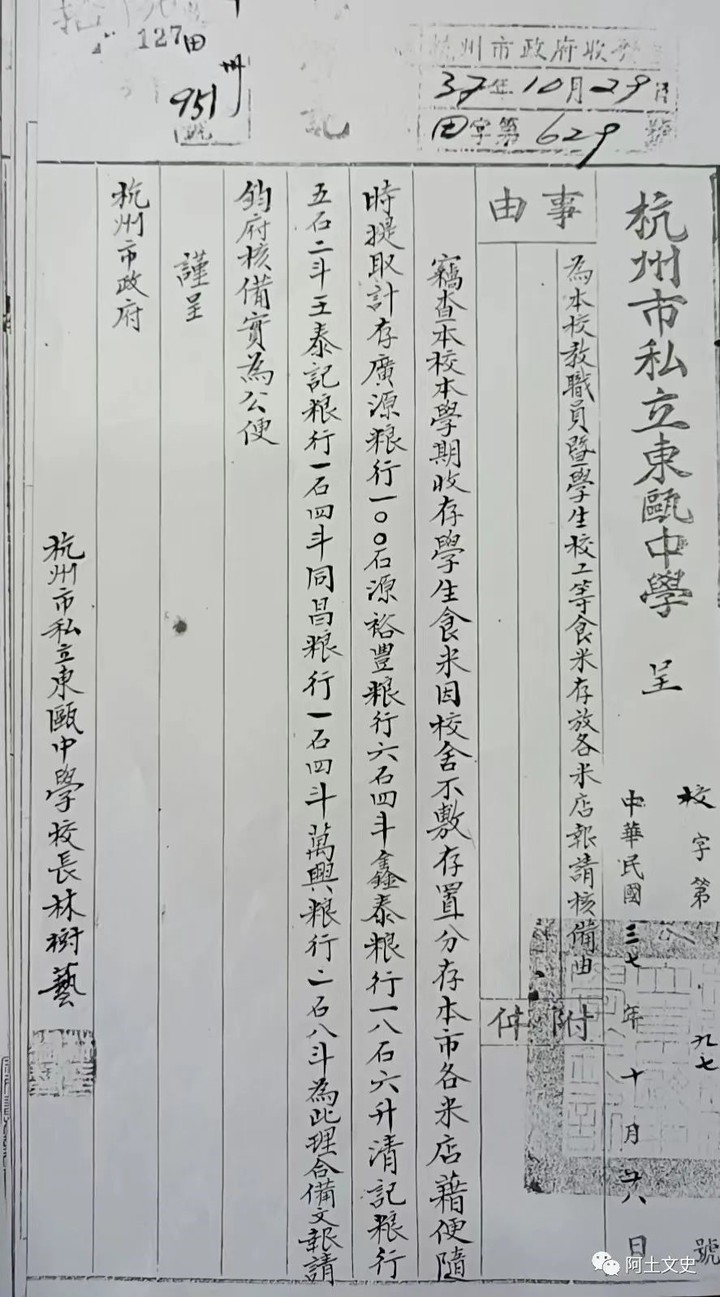 127田
951
號
杭州市政府收
37年10月29日
田字第629號
杭州市私立東甌中學 呈
校字第 九七 號
中華民國三七年十月廿八日
事由
為本校教職員暨學生校工等食米存放各米店報請核備由
附件
竊查本校本學期收存學生食米因校舍不敷存置分存本市各米店藉便隨
時提取計存廣源粮行一〇〇石源裕豐粮行六石四斗鑫泰粮行一八石六升清記粮行
五石二斗王泰記粮行一石四斗同昌粮行一石四斗萬興粮行二石八斗為此理合備文報請
鈞府核備實為公便
謹呈
杭州市政府
杭州市私立東甌中學校長林樹藝
阿土文史